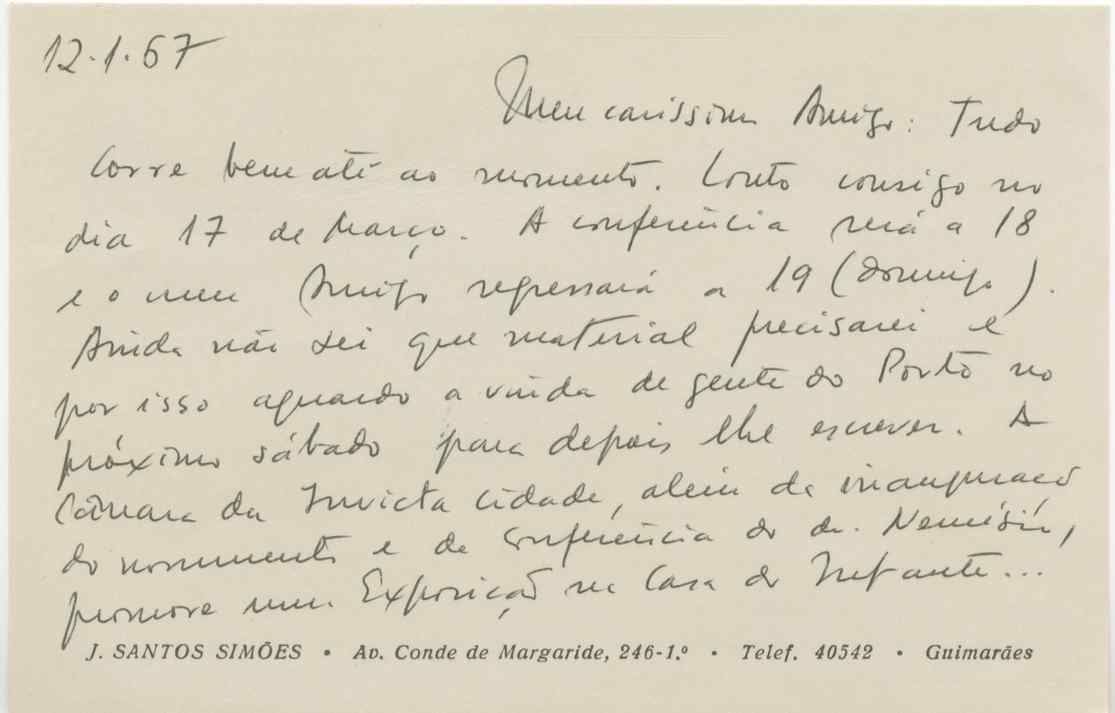 12.1.67
Meu caríssimo Amigo: Tudo
corre bem até ao momento. Conto consigo no
dia 17 de Março. A conferência será a 18
e o meu Amigo regressará a 19 (domingo).
Ainda não sei que material precisarei e
por isso aguardo a vinda de gente do Porto no
próximo sábado para depois lhe escrever. A
Câmara da Invicta cidade, além da inauguração
do monumento e da conferência do dr. Nemésio,
promove uma Exposição na Casa do Infante...
J. SANTOS SIMÕES • Av. Conde de Margaride, 246-1.º • Telef. 40542 • Guimarães